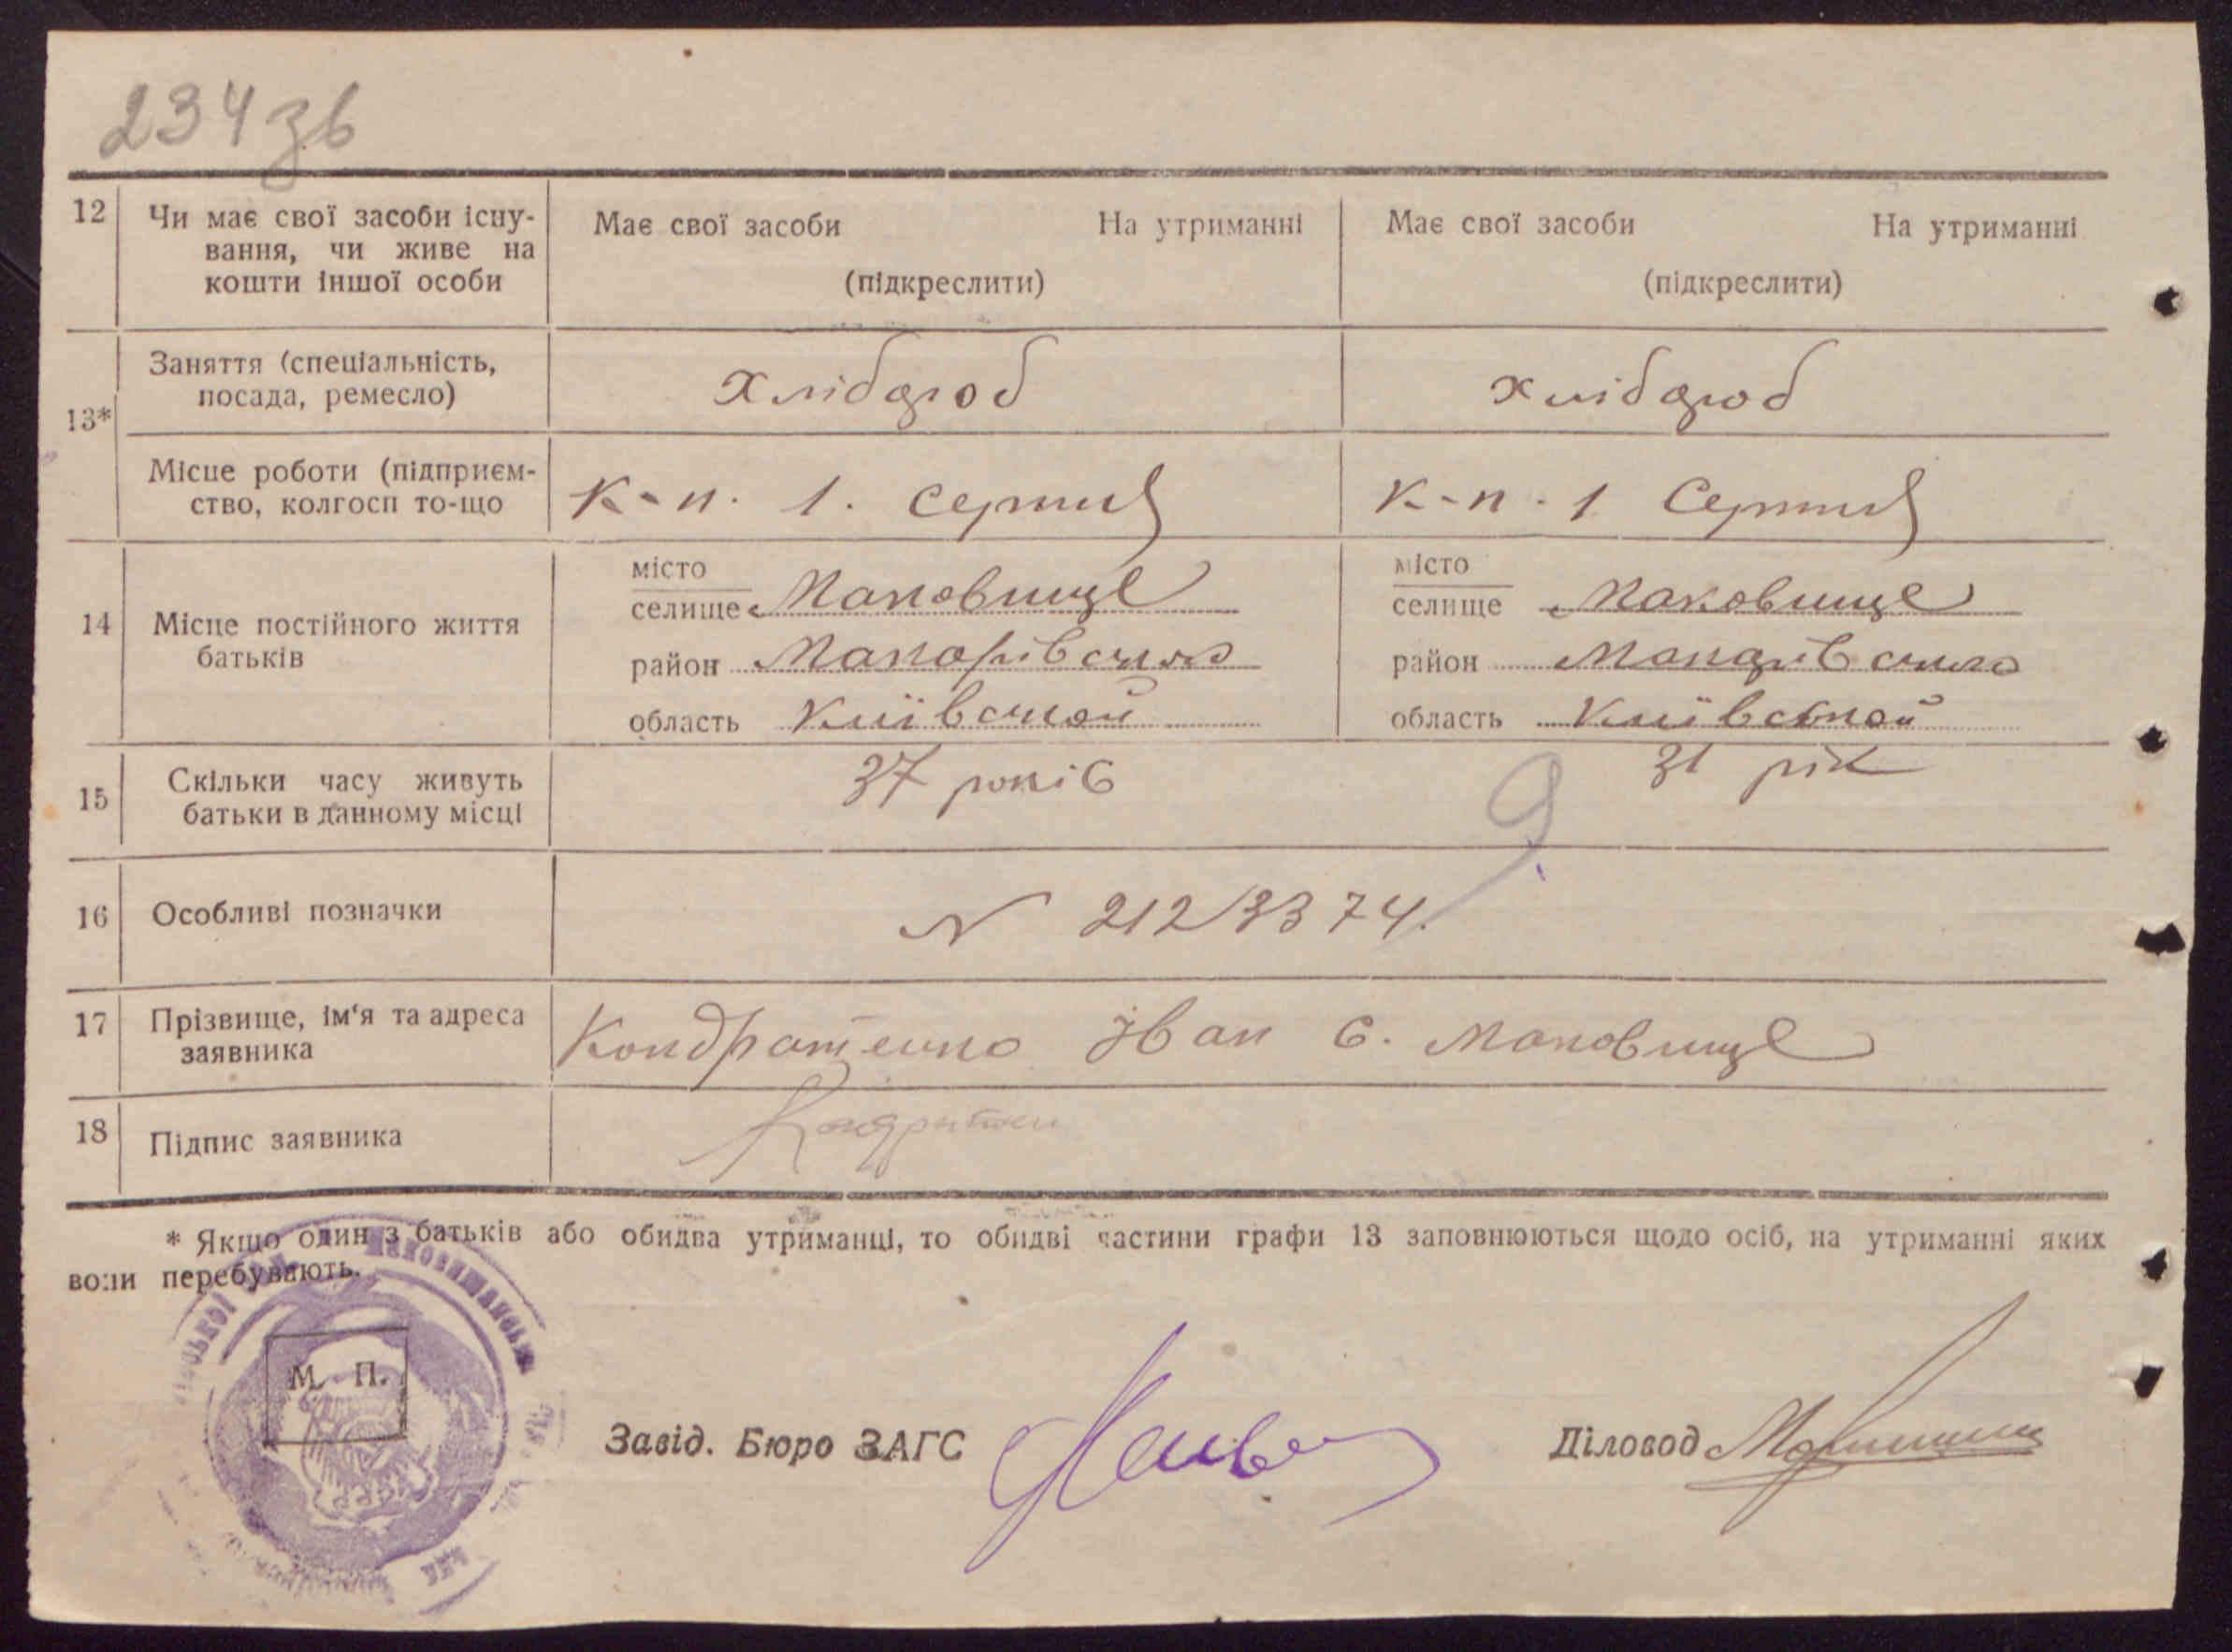 234 зв
12 Чи має свої засоби існу- Має свої засоби На утриманні Має свої засоби На утриманні
вання, чи живе на
кошти іншої особи (підкреслити) (підкреслити)
Заняття (спеціальність, Хлібороб хлібороб
посада, ремесло)
13*
Місце роботи (підприєм- к-п. 1. серпня к-п. 1 Серпня
ство, колгосп то-що
місто місто
селище Маковище селище Маковище
14 Місце постійного життя
батьків район Макарівского район Макарівского
область Київской область Київской
15 Скільки часу живуть 37 років 31 рік
батьки в данному місці
16 Особливі позначки N 2123374.
17 Прізвище, ім'я та адреса Кондратенко Іван с. Маковище
заявника
18 Підпис заявника
* Якщо один з батьків або обидва утриманці, то обидві частини графи 13 заповнюються щодо осіб, на утриманні яких
вони перебувають.
М. П.
Завід. Бюро ЗАГС Діловод